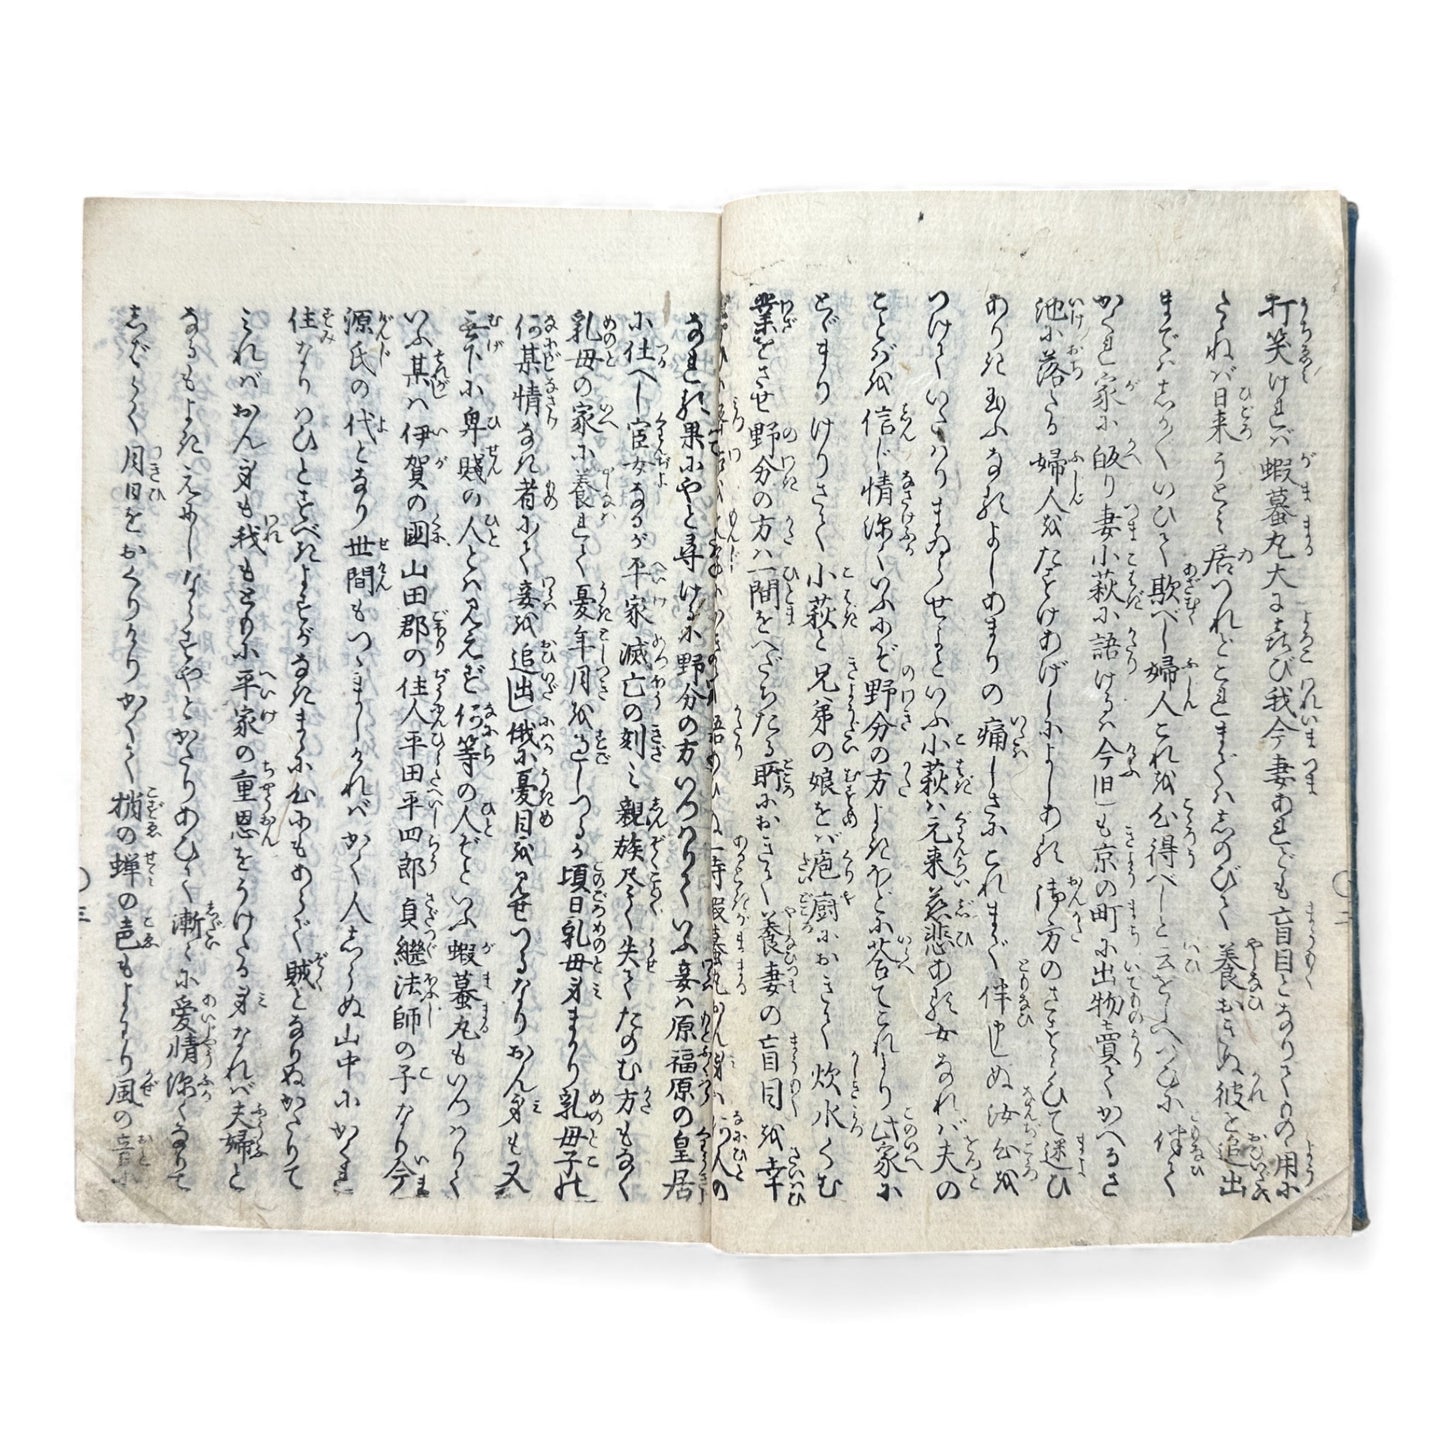 打笑けれバ蝦蟇丸大に喜び我今妻あれども盲目となりてものゝ用に
たゝねバ日来うとく居つれどこれまでハしのびて養おきぬ彼を追出
までハしか〴〵いひて欺べし婦人これを心得べしと云をしへつひに伴て
かくれ家に皈り妻小萩に語けるハ今日しも京の町に出物賣てかへるさ
池に落たる婦人をたすけあげしによしある御方のさすらひて迷ひ
ありき玉ふなるよしあまりの痛しさにこれまで伴申しぬ汝心を
つけていたはりまゐらせよといふ小萩ハ元来慈悲ある女なれバ夫の
ことばを信じ情深くいふにぞ野分の方よきほどに答てこれより此家に
とゞまりけりさて小萩と兄弟の娘をバ庖厨におきて炊水くむ
業をさせ野分の方ハ一間をへだちたる所におきて養妻の盲目を幸
なれる果にやと尋けるに野分の方いつはりていふ妾ハ原福原の皇居
に仕へし官女なるが平家滅亡の刻ミ親族尽く失てたのむ方もなく
乳母の家に養れて憂年月を過しつるが頃日乳母身まかり乳母子の
何某情なき者にて妾を追出し俄に憂目を見せつるなりおん身も又
無下に卑賤の人とハ見えず何等の人ぞといふ蝦蟇丸もいつはりて
いふ某ハ伊賀の國山田郡の住人平田平四郎貞継法師の子なり今
源氏の代となり世間もつゝましければかく人しらぬ山中にかくれ
住なりひとすべきよすがなきまゝに心にもあらで賊となりぬかゝりて
これバおん身も我もともに平家の重恩をうけたる身なれバ夫婦と
なるもよきえにしならずやとかたりあひて漸々に愛情深くなりて
しばらく月日をおくりけりかくて梢の蝉の声もよわり風の音に